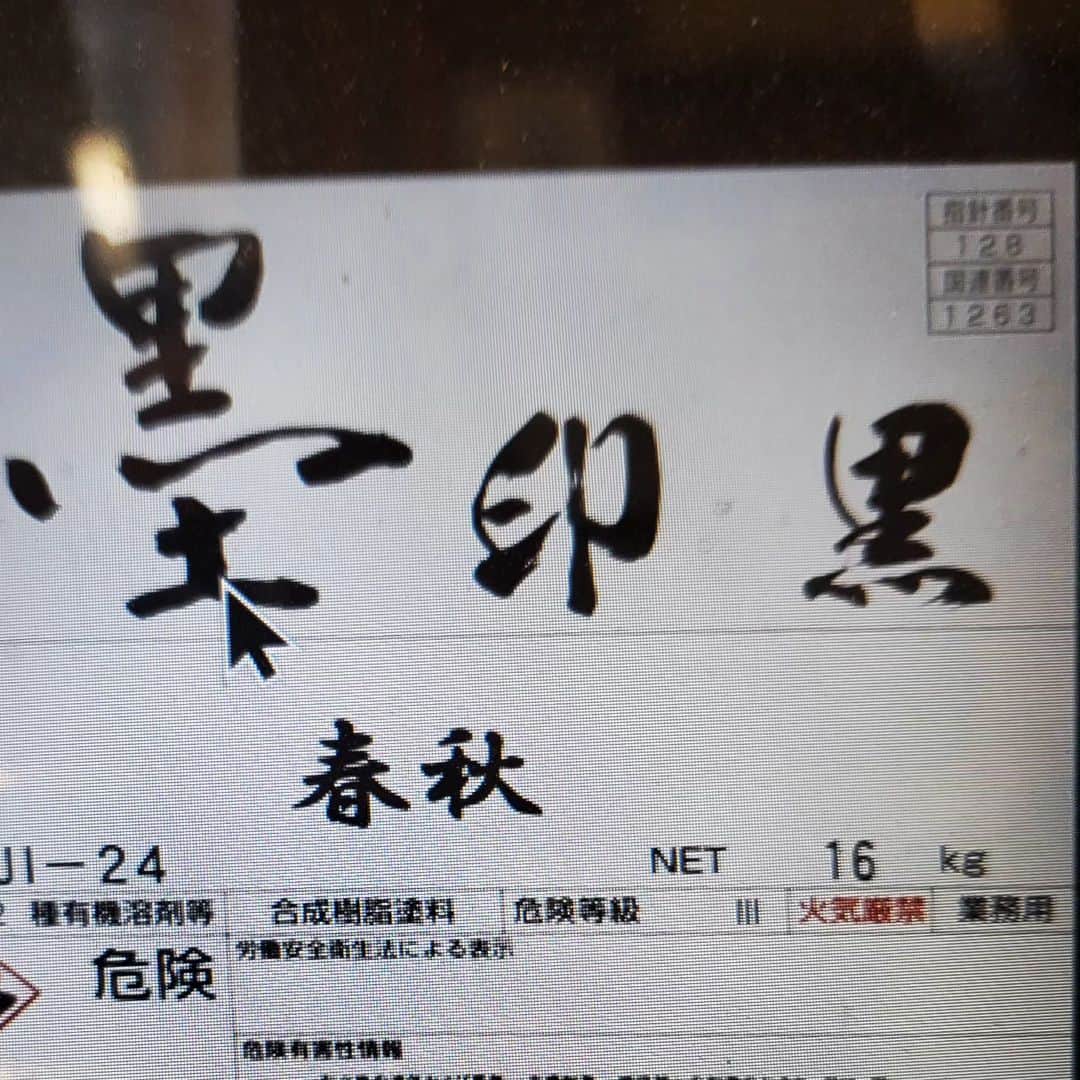 指針番号
128
国連番号
1263
墨印黒
春秋
JI-24 NET 16 kg
種有機溶剤等 合成樹脂塗料 危険等級 III 火気厳禁 業務用
危険 労働安全衛生法による表示
危険有害性情報